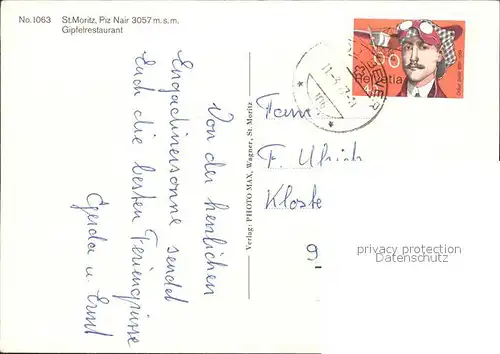 No. 1063 St. Moritz, Piz Nair 3057 m. s. m.
Gipfelrestaurant
Von der herrlichen
Engadinersonne sendet
Euch die besten Feriengrüsse
Gerda u. Ernst
Verlag: PHOTO MAX, Wagner, St. Moritz
Helvetia
Fam
F. Ulrich
Kloste
9
privacy protection
Datenschutz